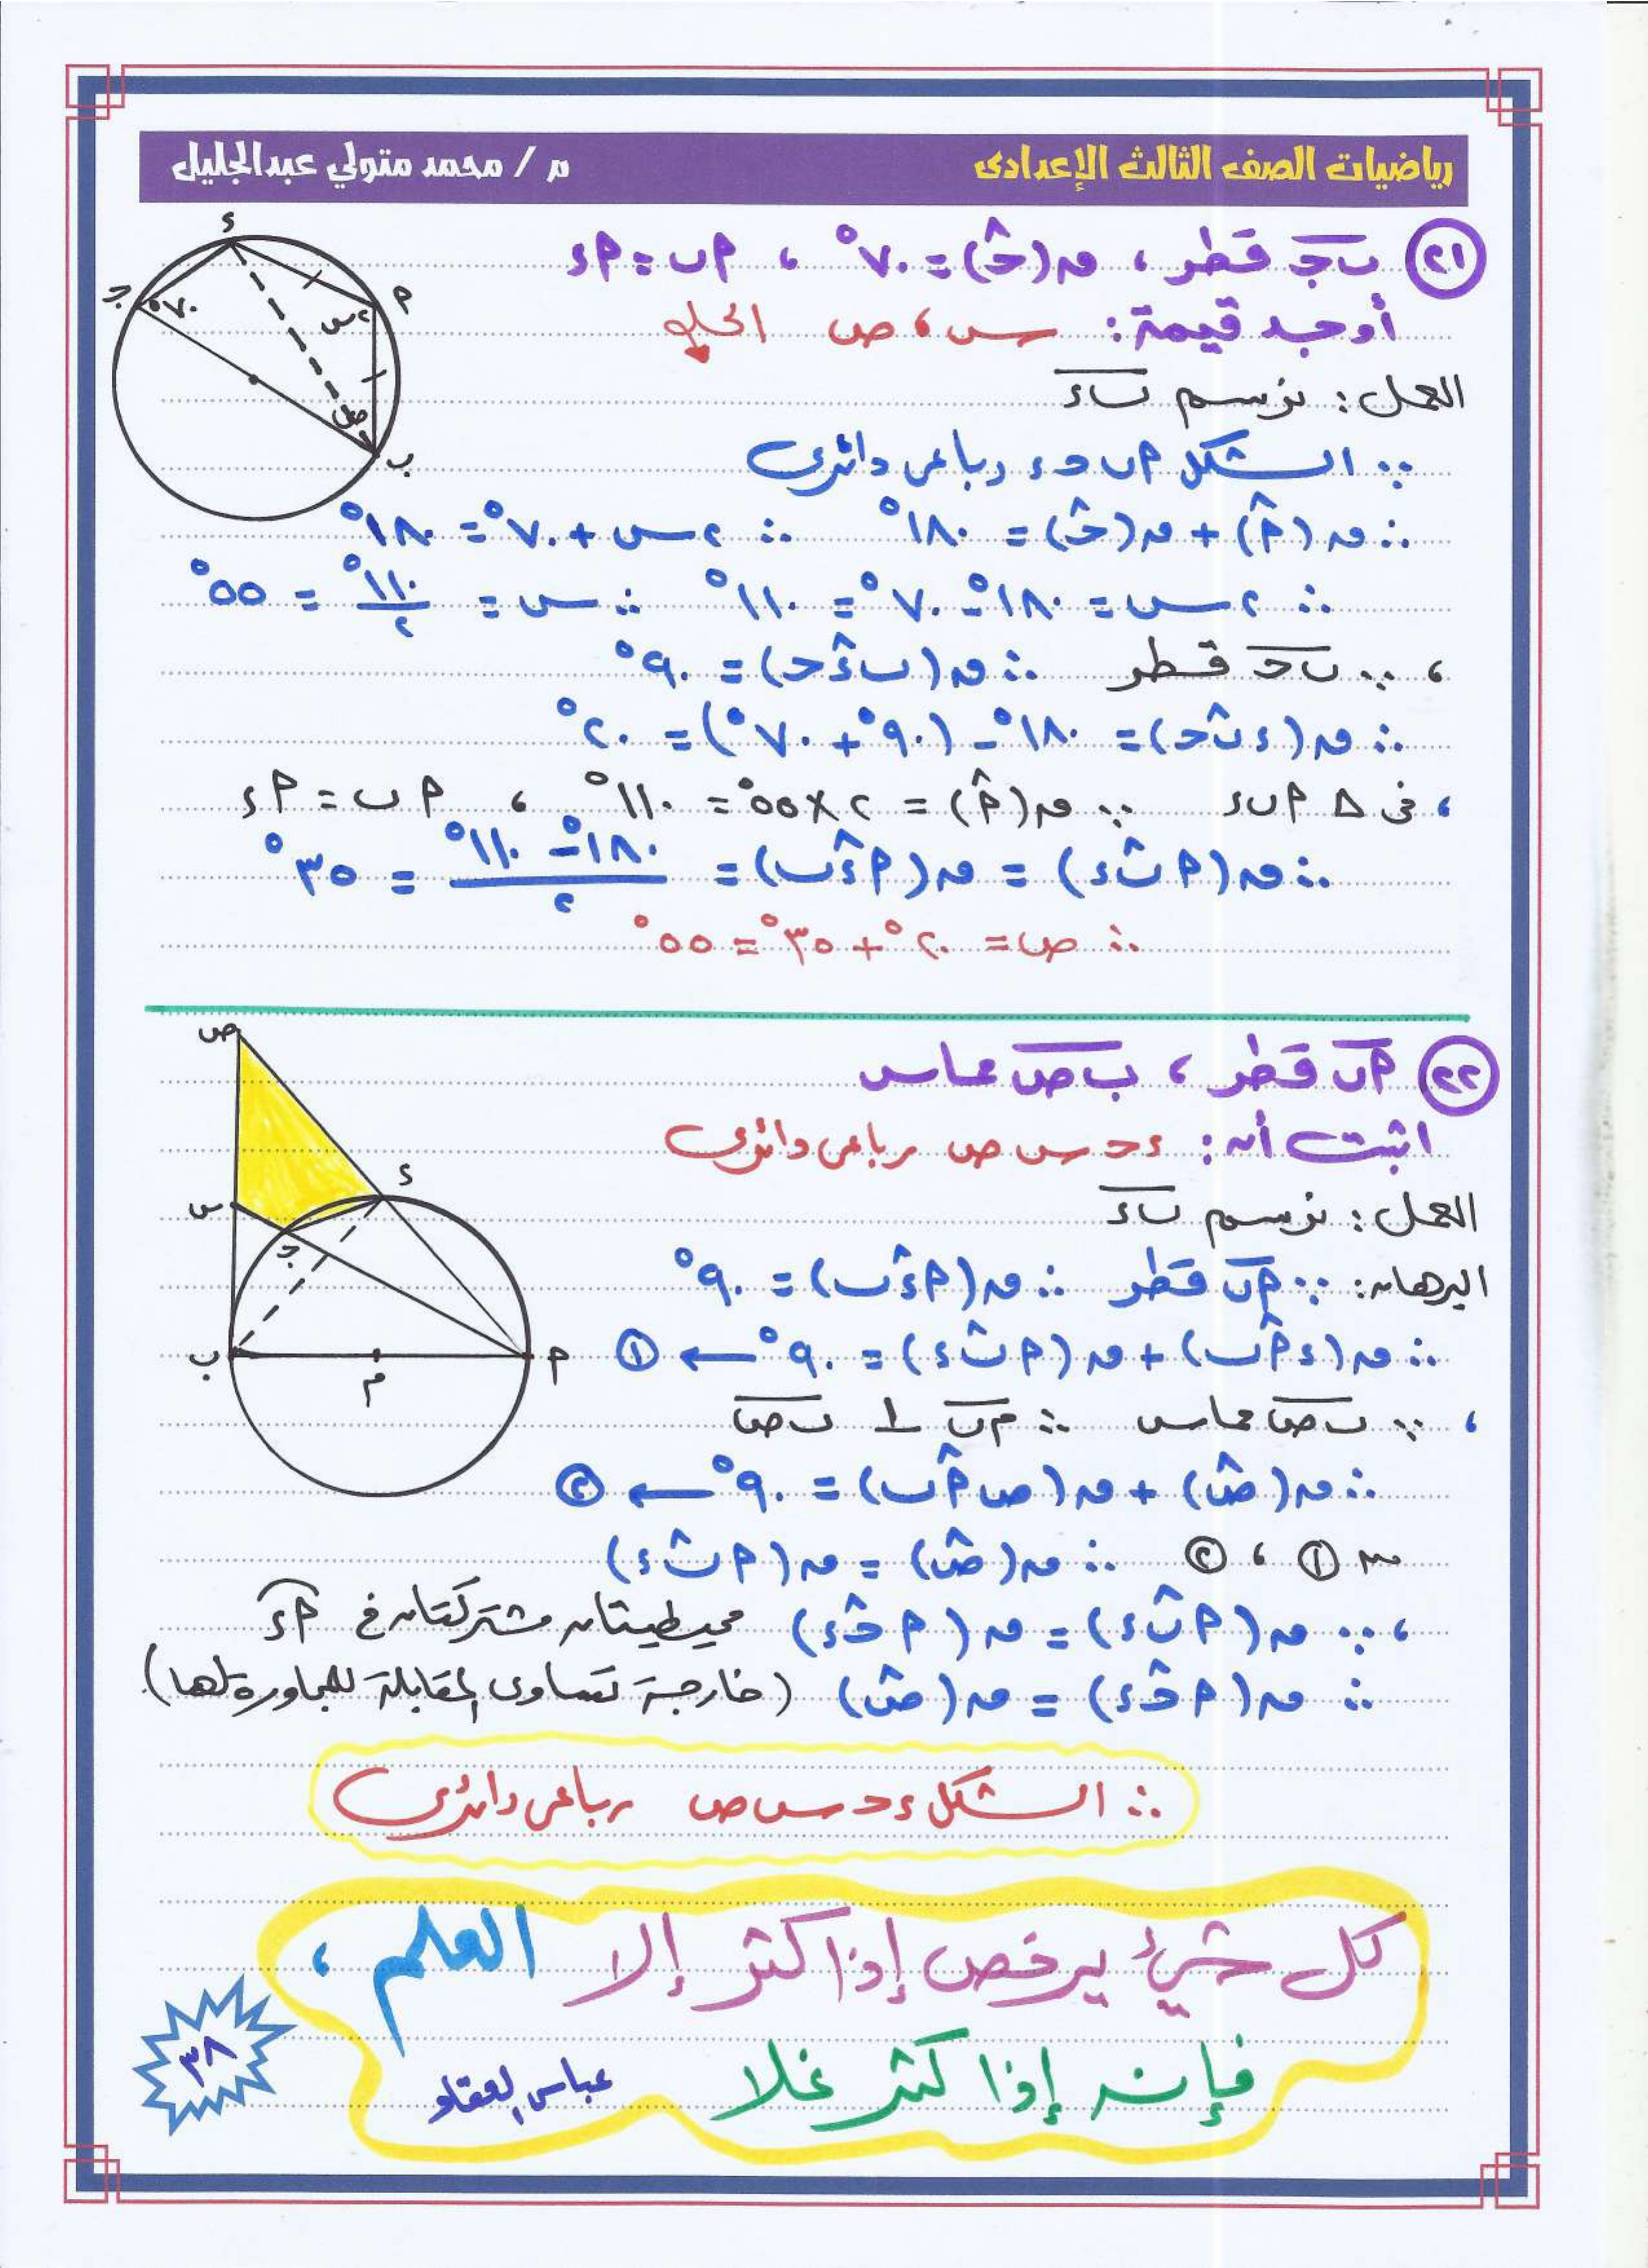 رياضيات الصف الثالث الإعدادى
م / محمد متولي عبدالجليل
٢١ ب ج قطر ، ق(حˆ) = ٧٠° ، أ ب = أ ء
أوجد قيمة: س ، ص الحل
العمل: نرسم ب ء
∵ الشكل أ ب ح ء رباعى دائرى
∴ ق(أˆ) + ق(حˆ) = ١٨٠° ∴ ٢س + ٧٠° = ١٨٠°
∴ ٢س = ١٨٠° - ٧٠° = ١١٠° ∴ س = ١١٠°/٢ = ٥٥°
، ∵ ب ح قطر ∴ ق(ب ءˆ ح) = ٩٠°
∴ ق(ء بˆ ح) = ١٨٠° - (٩٠° + ٧٠°) = ٢٠°
، فى Δ أ ب ء ∵ ق(أˆ) = ٢ × ٥٥° = ١١٠° ، أ ب = أ ء
∴ ق(أ بˆ ء) = ق(أ ءˆ ب) = (١٨٠° - ١١٠°)/٢ = ٣٥°
∴ ص = ٢٠° + ٣٥° = ٥٥°
ء
أ
ج
٧٠°
٢س
ص
ب
٢٢ أ ب قطر ، ب ص مماس
اثبت أن: ء ح س ص رباعى دائرى
العمل: نرسم ب ء
البرهان: ∵ أ ب قطر ∴ ق(أ ءˆ ب) = ٩٠°
∴ ق(ء أˆ ب) + ق(أ بˆ ء) = ٩٠° ← ①
، ∵ ب ص مماس ∴ م ب ⊥ ب ص
∴ ق(صˆ) + ق(ص أˆ ب) = ٩٠° ← ②
من ① ، ② ∴ ق(صˆ) = ق(أ بˆ ء)
، ∵ ق(أ بˆ ء) = ق(أ حˆ ء) محيطيتان مشتركتان في أ ء
∴ ق(أ حˆ ء) = ق(صˆ) (خارجة تساوى المقابلة للمجاورة لها)
∴ الشكل ء ح س ص رباعى دائرى
ص
ء
س
ج
ب
م
أ
كل شيئ يرخص إذا كثر إلا العلم ،
فإنه إذا كثر غلا
عباس العقاد
٣٨